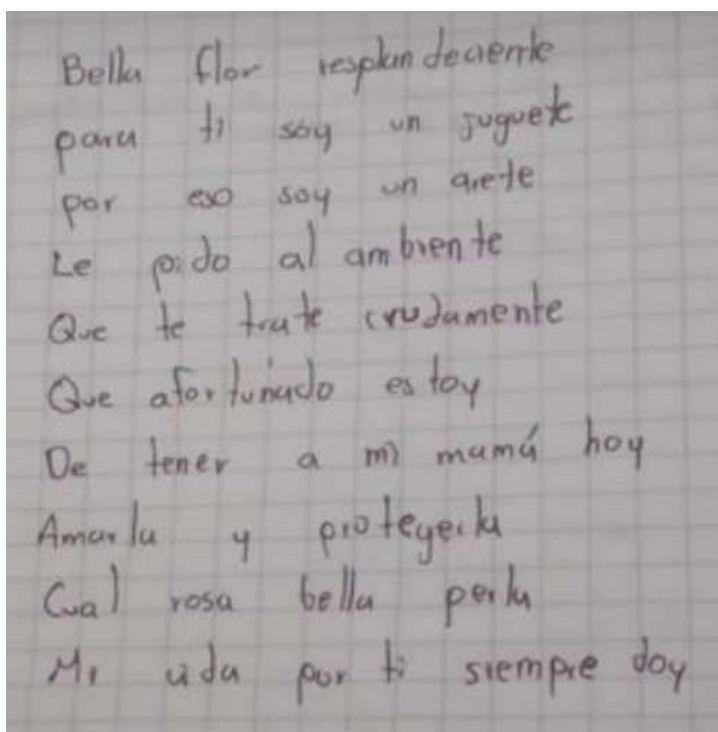 Bella flor resplandeciente
para ti soy un juguete
por eso soy un arete
Le pido al ambiente
Que te trate crudamente
Que afortunado estoy
De tener a mi mamá hoy
Amarla y protegerla
Cual rosa bella perla
Mi vida por ti siempre doy